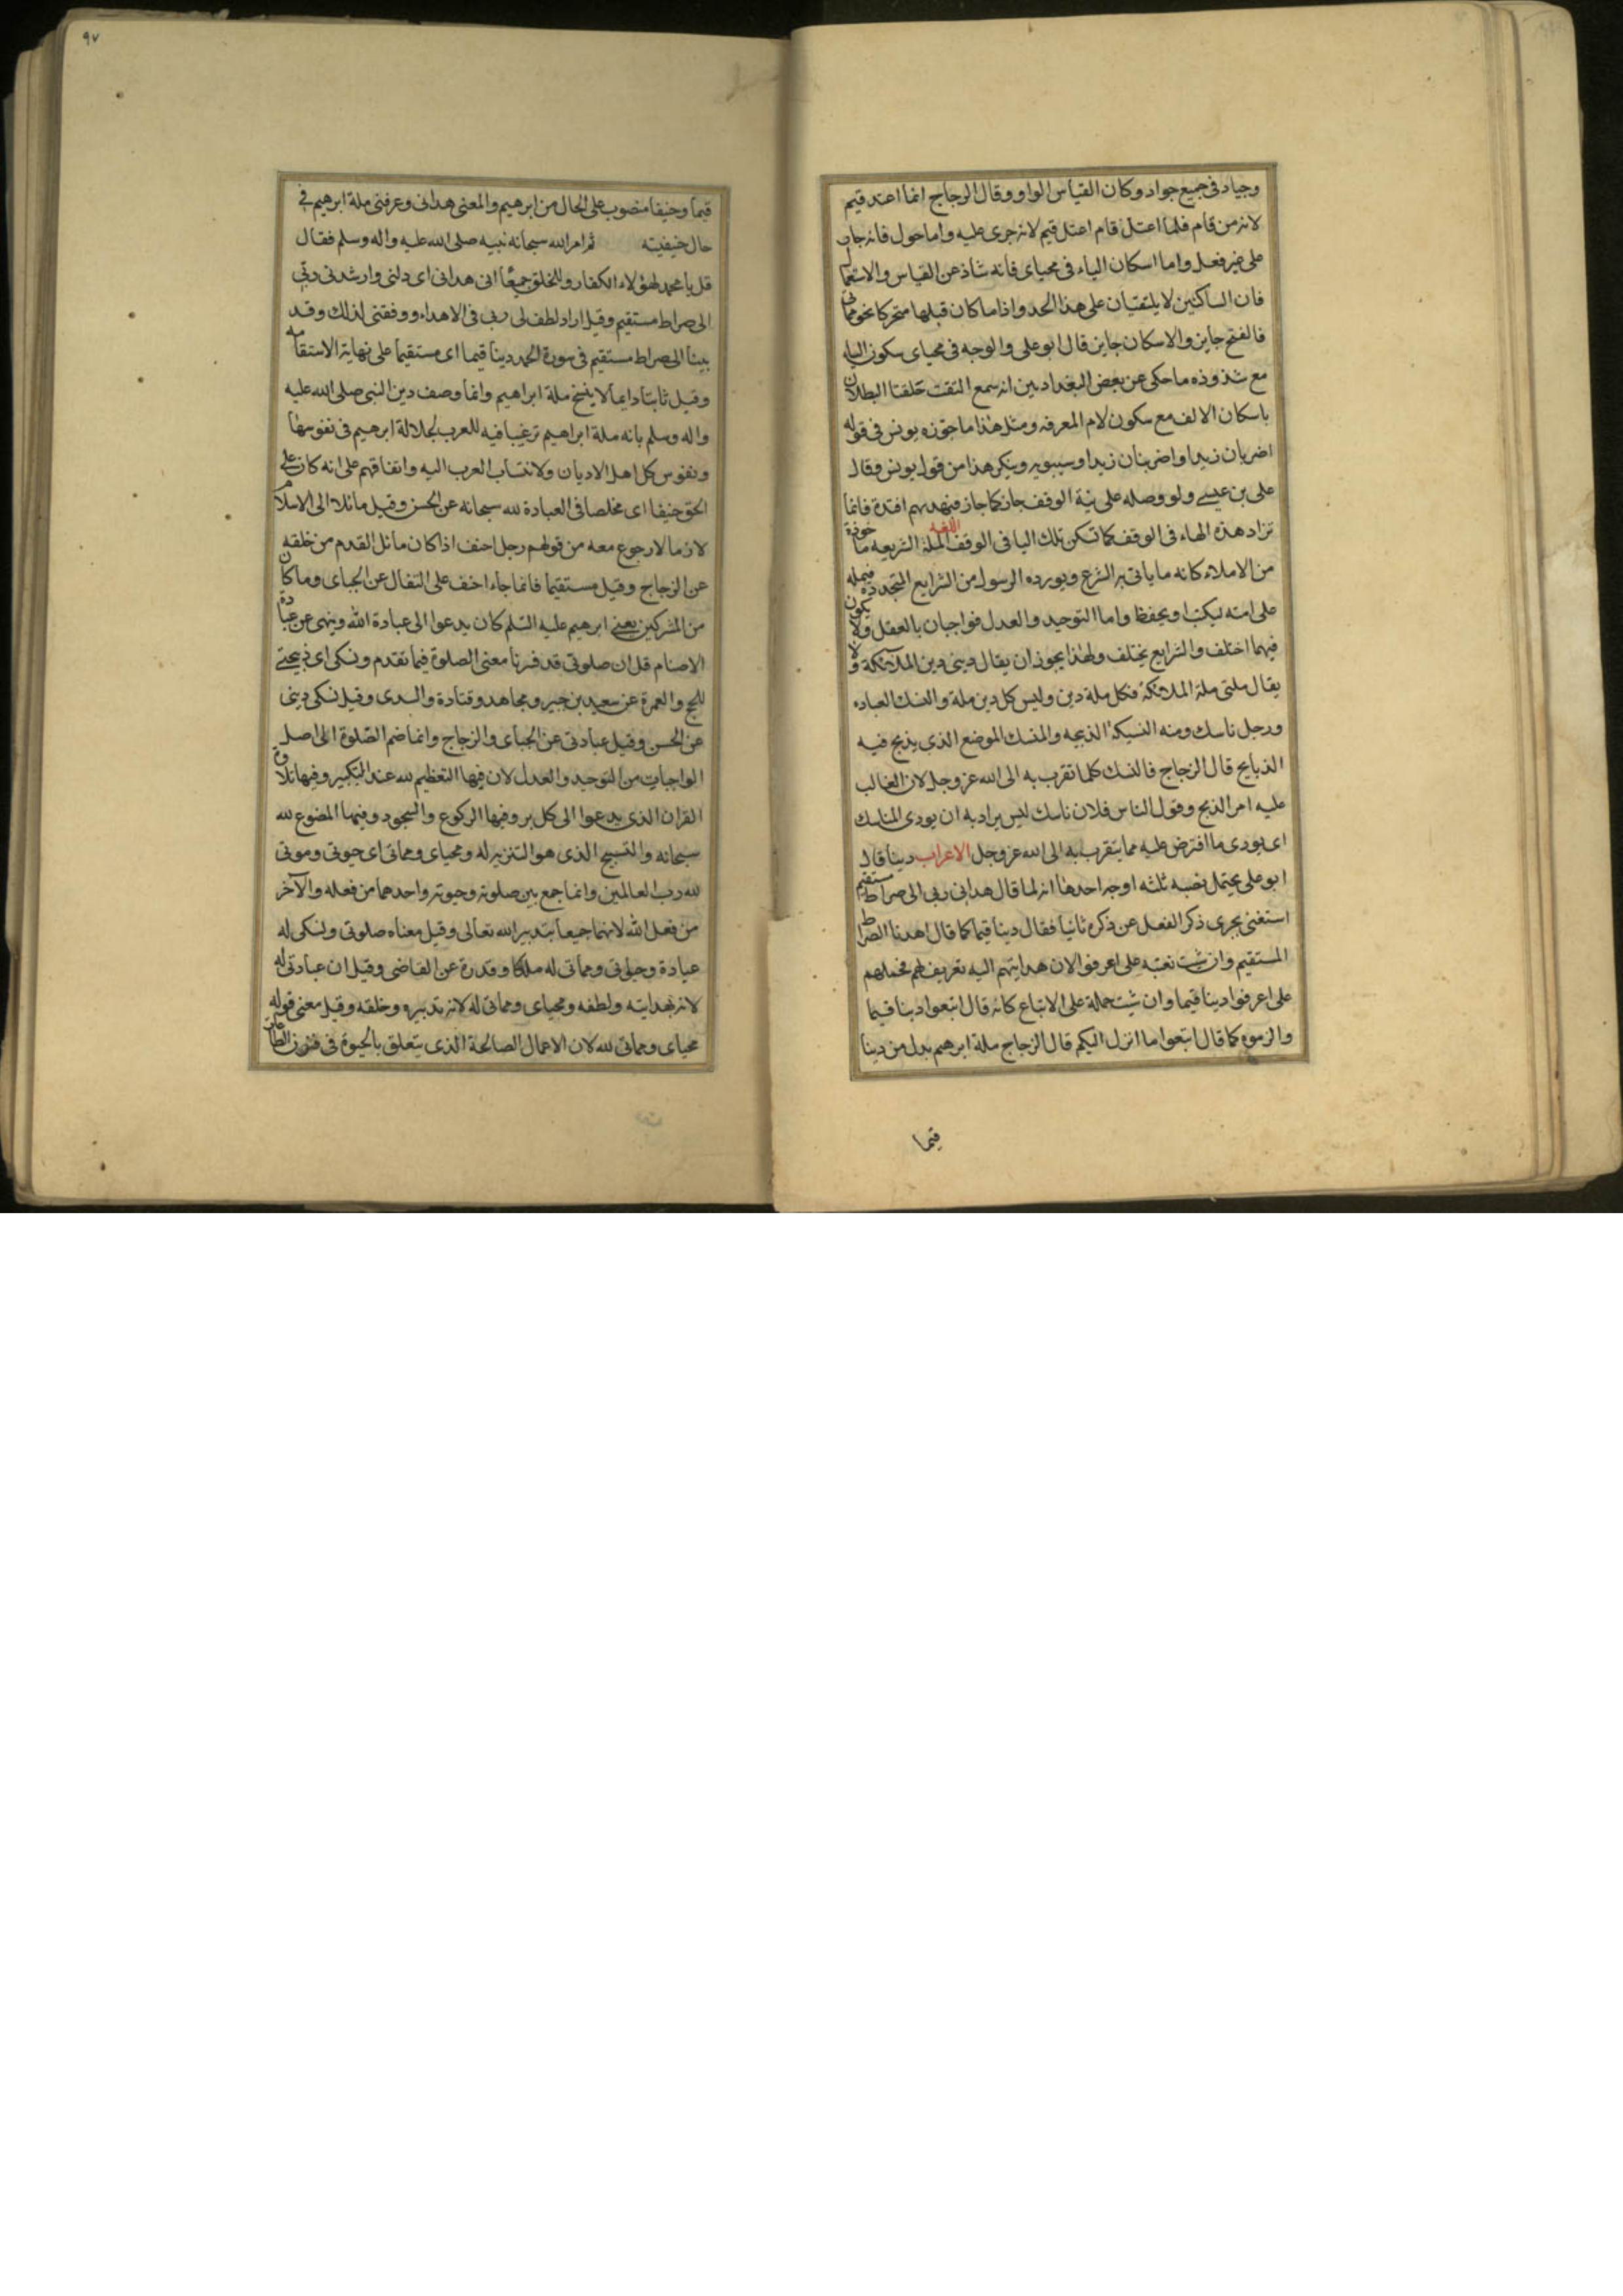 وجياد فى جميع جواد وكان القياس الواو وقال الزجاج انما اعتد قيم
لانه من قام فلما اعتل قام اعتل قيم لانه جرى عليه واما حول فانه جار
على غير فعل واما اسكان الياء فى محياى فانه شاذ عن القياس والاستعمال
فان الساكنين لا يلتقيان على هذا الحد واذا ما كان قبلها متحركا نحو مماتى
فالفتح جايز والاسكان جايز قال ابو على والوجه فى محياى سكون الياء
مع شذوذه ما حكى عن بعض البغداديين انه سمع التقت حلقتا البطان
باسكان الالف مع سكون لام المعرفه ومثل هذا ما جوزه يونس فى قوله
اضربان زيدا واضربنان زيدا وسيبويه ينكر هذا من قول يونس وقال
على بن عيسى ولو وصله على نية الوقف جاز كما جاز فبهديهم اقتده فانما
تزاد هذه الهاء فى الوقف كما تسكن تلك اليا فى الوقف اللغه الملة الشريعه ماخوذة
من الاملاء كانه ما ياتى به الشرع ويورده الرسول من الشرايع المتجددة فيمله
على امته ليكتب او يحفظ واما التوحيد والعدل فواجبان بالعقل ولا يكون
فيهما اختلف والشرايع يختلف ولهذا يجوز ان يقال دينى دين الملائكة ولا
يقال ملتى ملة الملائكة فكل ملة دين وليس كل دين ملة والنسك العباده
ورجل ناسك ومنه النسيكة الذبيحه والمنسك الموضع الذى يذبح فيه
الذبايح قال الزجاج فالنسك كلما تقرب به الى الله عز وجل لان الغالب
عليه امر الذبح وقول الناس فلان ناسك ليس يراد به ان يودى المناسك
اى يودى ما افترض عليه مما يتقرب به الى الله عز وجل الاعراب دينا قال
ابو على يحتمل نصبه ثلثه اوجه احدها انه لما قال هدانى ربى الى صراط مستقيم
استغنى بجرى ذكر الفعل عن ذكره ثانيا فقال دينا قيما كما قال اهدنا الصراط
المستقيم وان شئت نصبه على اعرفوا لان هدايتهم اليه تعريف لهم فحملهم
على اعرفوا دينا قيما وان شئت حملته على الاتباع كانه قال اتبعوا دينا قيما
والزموه كما قال اتبعوا ما انزل اليكم قال الزجاج ملة ابرهيم بدل من دينا
قيما
٩٧
قيما وحنيفا منصوب على الحال من ابرهيم والمعنى هدانى وعرفنى ملة ابرهيم فى
حال حنيفيته ثم امر الله سبحانه نبيه صلى الله عليه واله وسلم فقال
قل يا محمد لهؤلاء الكفار وللخلق جميعا اننى هدانى اى دلنى وارشدنى ربى
الى صراط مستقيم وقيل اراد لطف لى ربى فى الاهتداء ووفقنى لذلك وقد
بينا الى صراط مستقيم فى سورة الحمد دينا قيما اى مستقيما على نهاية الاستقامه
وقيل ثابتا دايما لا ينسخ ملة ابراهيم وانما وصف دين النبى صلى الله عليه
واله وسلم بانه ملة ابراهيم ترغيبا فيه للعرب لجلالة ابرهيم فى نفوسها
ونفوس كل اهل الاديان ولانتساب العرب اليه واتفاقهم على انه كان على
الحق حنيفا اى مخلصا فى العبادة لله سبحانه عن الحسن وقيل مائلا الى الاسلام
لازما لا رجوع معه من قولهم رجل احنف اذا كان مائل القدم من خلقه
عن الزجاج وقيل مستقيما فانما جاء احنف على التفال عن الجبائى وما كان
من المشركين يعنى ابرهيم عليه السلم كان يدعوا الى عبادة الله وينهى عن عبادة
الاصنام قل ان صلوتى قد فسرنا معنى الصلوة فيما تقدم ونسكى اى ذبيحتى
للحج والعمرة عن سعيد بن جبير ومجاهد وقتادة والسدى وقيل نسكى دينى
عن الحسن وقيل عبادتى عن الجبائى والزجاج وانما ضم الصلوة الى اصل
الواجبات من التوحيد والعدل لان فيها التعظيم لله عند التكبير وفيها تلاوة
القران الذى يدعوا الى كل بر وفيها الركوع والسجود وفيهما الخضوع لله
سبحانه والتسبيح الذى هو التنزيه له ومحياى ومماتى اى حيوتى وموتى
لله رب العالمين وانما جمع بين صلوته وحيوته واحدهما من فعله والآخر
من فعل الله لانهما جميعا بتدبير الله تعالى وقيل معناه صلوتى ونسكى له
عبادة وحيوتى ومماتى له ملكا وقدرة عن القاضى وقيل ان عبادتى له
لانه بهدايته ولطفه ومحياى ومماتى له لانه بتدبيره وخلقه وقيل معنى قوله
محياى ومماتى لله لان الاعمال الصالحة الذى يتعلق بالحيوة فى فنون الطاعات